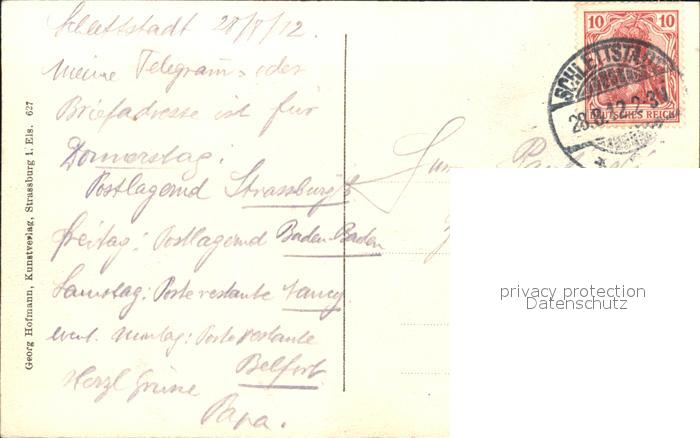 Schlettstadt 28/8/12.
Meine Telegram= oder
Briefadresse ist für
Donnerstag:
Postlagernd Strassburg
Freitag: Postlagernd Baden-Baden
Samstag: Poste restante Nancy
event. Montag: Poste restante
Belfort.
Herzl Grüsse
Papa.
Georg Hofmann, Kunstverlag, Strassburg i. Els. 627
10 10
DEUTSCHES REICH
SCHLETTSTADT
28.8.12.2-3N
privacy protection
Datenschutz